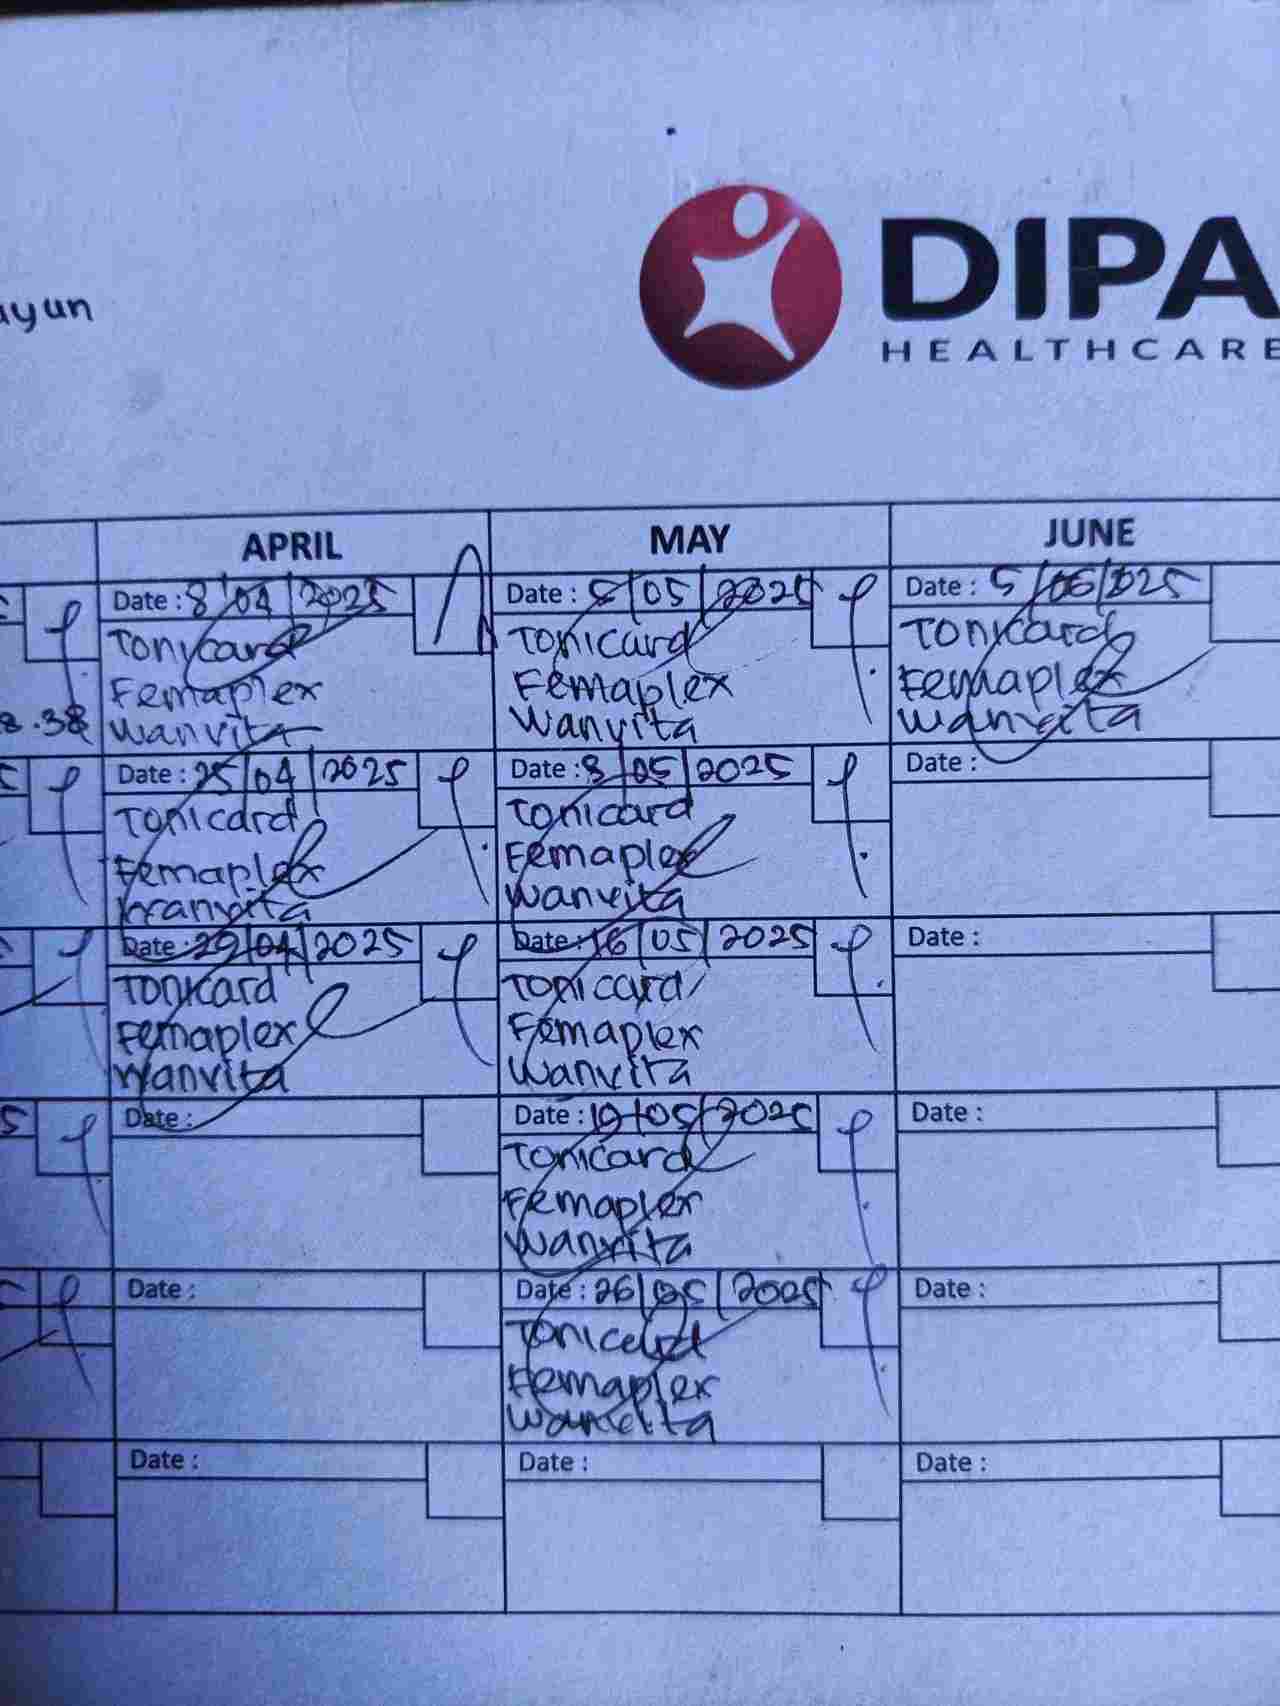 ayun
DIPA
HEALTHCARE
APRIL
MAY
JUNE
Date : 8/04/2025
Tonicard
Femaplex
Wanvita
Date : 5/05/2025
Tonicard
Femaplex
Wanvita
Date : 5/06/2025
Tonicard
Femaplex
Wanvita
8.38
Date : 25/04/2025
Tonicard
Femaplex
Wanvita
Date : 8/05/2025
Tonicard
Femaplex
Wanvita
Date :
Date : 29/04/2025
Tonicard
Femaplex
Wanvita
Date : 16/05/2025
Tonicard
Femaplex
Wanvita
Date :
Date :
Date : 19/05/2025
Tonicard
Femaplex
Wanvita
Date :
Date :
Date : 26/05/2025
Tonicard
Femaplex
Wanvita
Date :
Date :
Date :
Date :